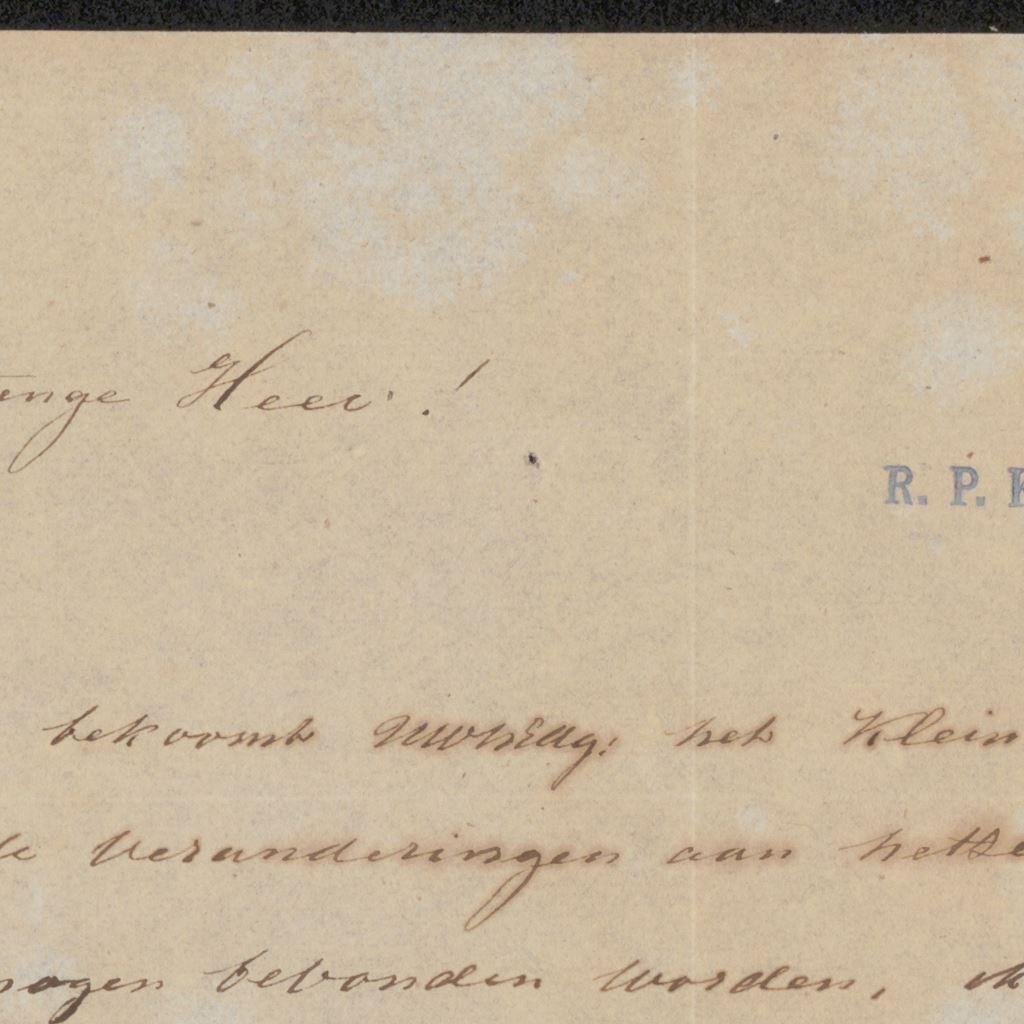 enge Heer!
R. P. K
bekoomt UwWEdg: het Klein
veranderingen aan hetze
mogen bevonden worden,